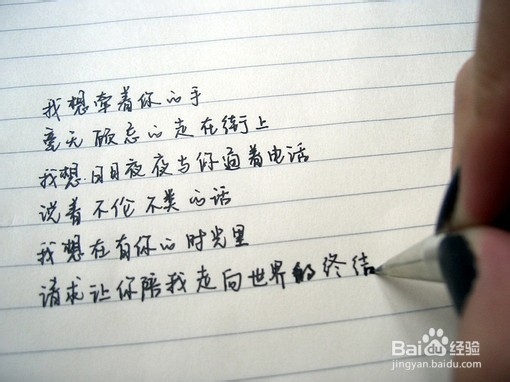 我想牵着你的手
毫无顾忌的走在街上
我想日日夜夜与你通着电话
说着不伦不类的话
我想在有你的时光里
请求让你陪我走向世界的终结
Baidu 经验
jingyan.baidu.com